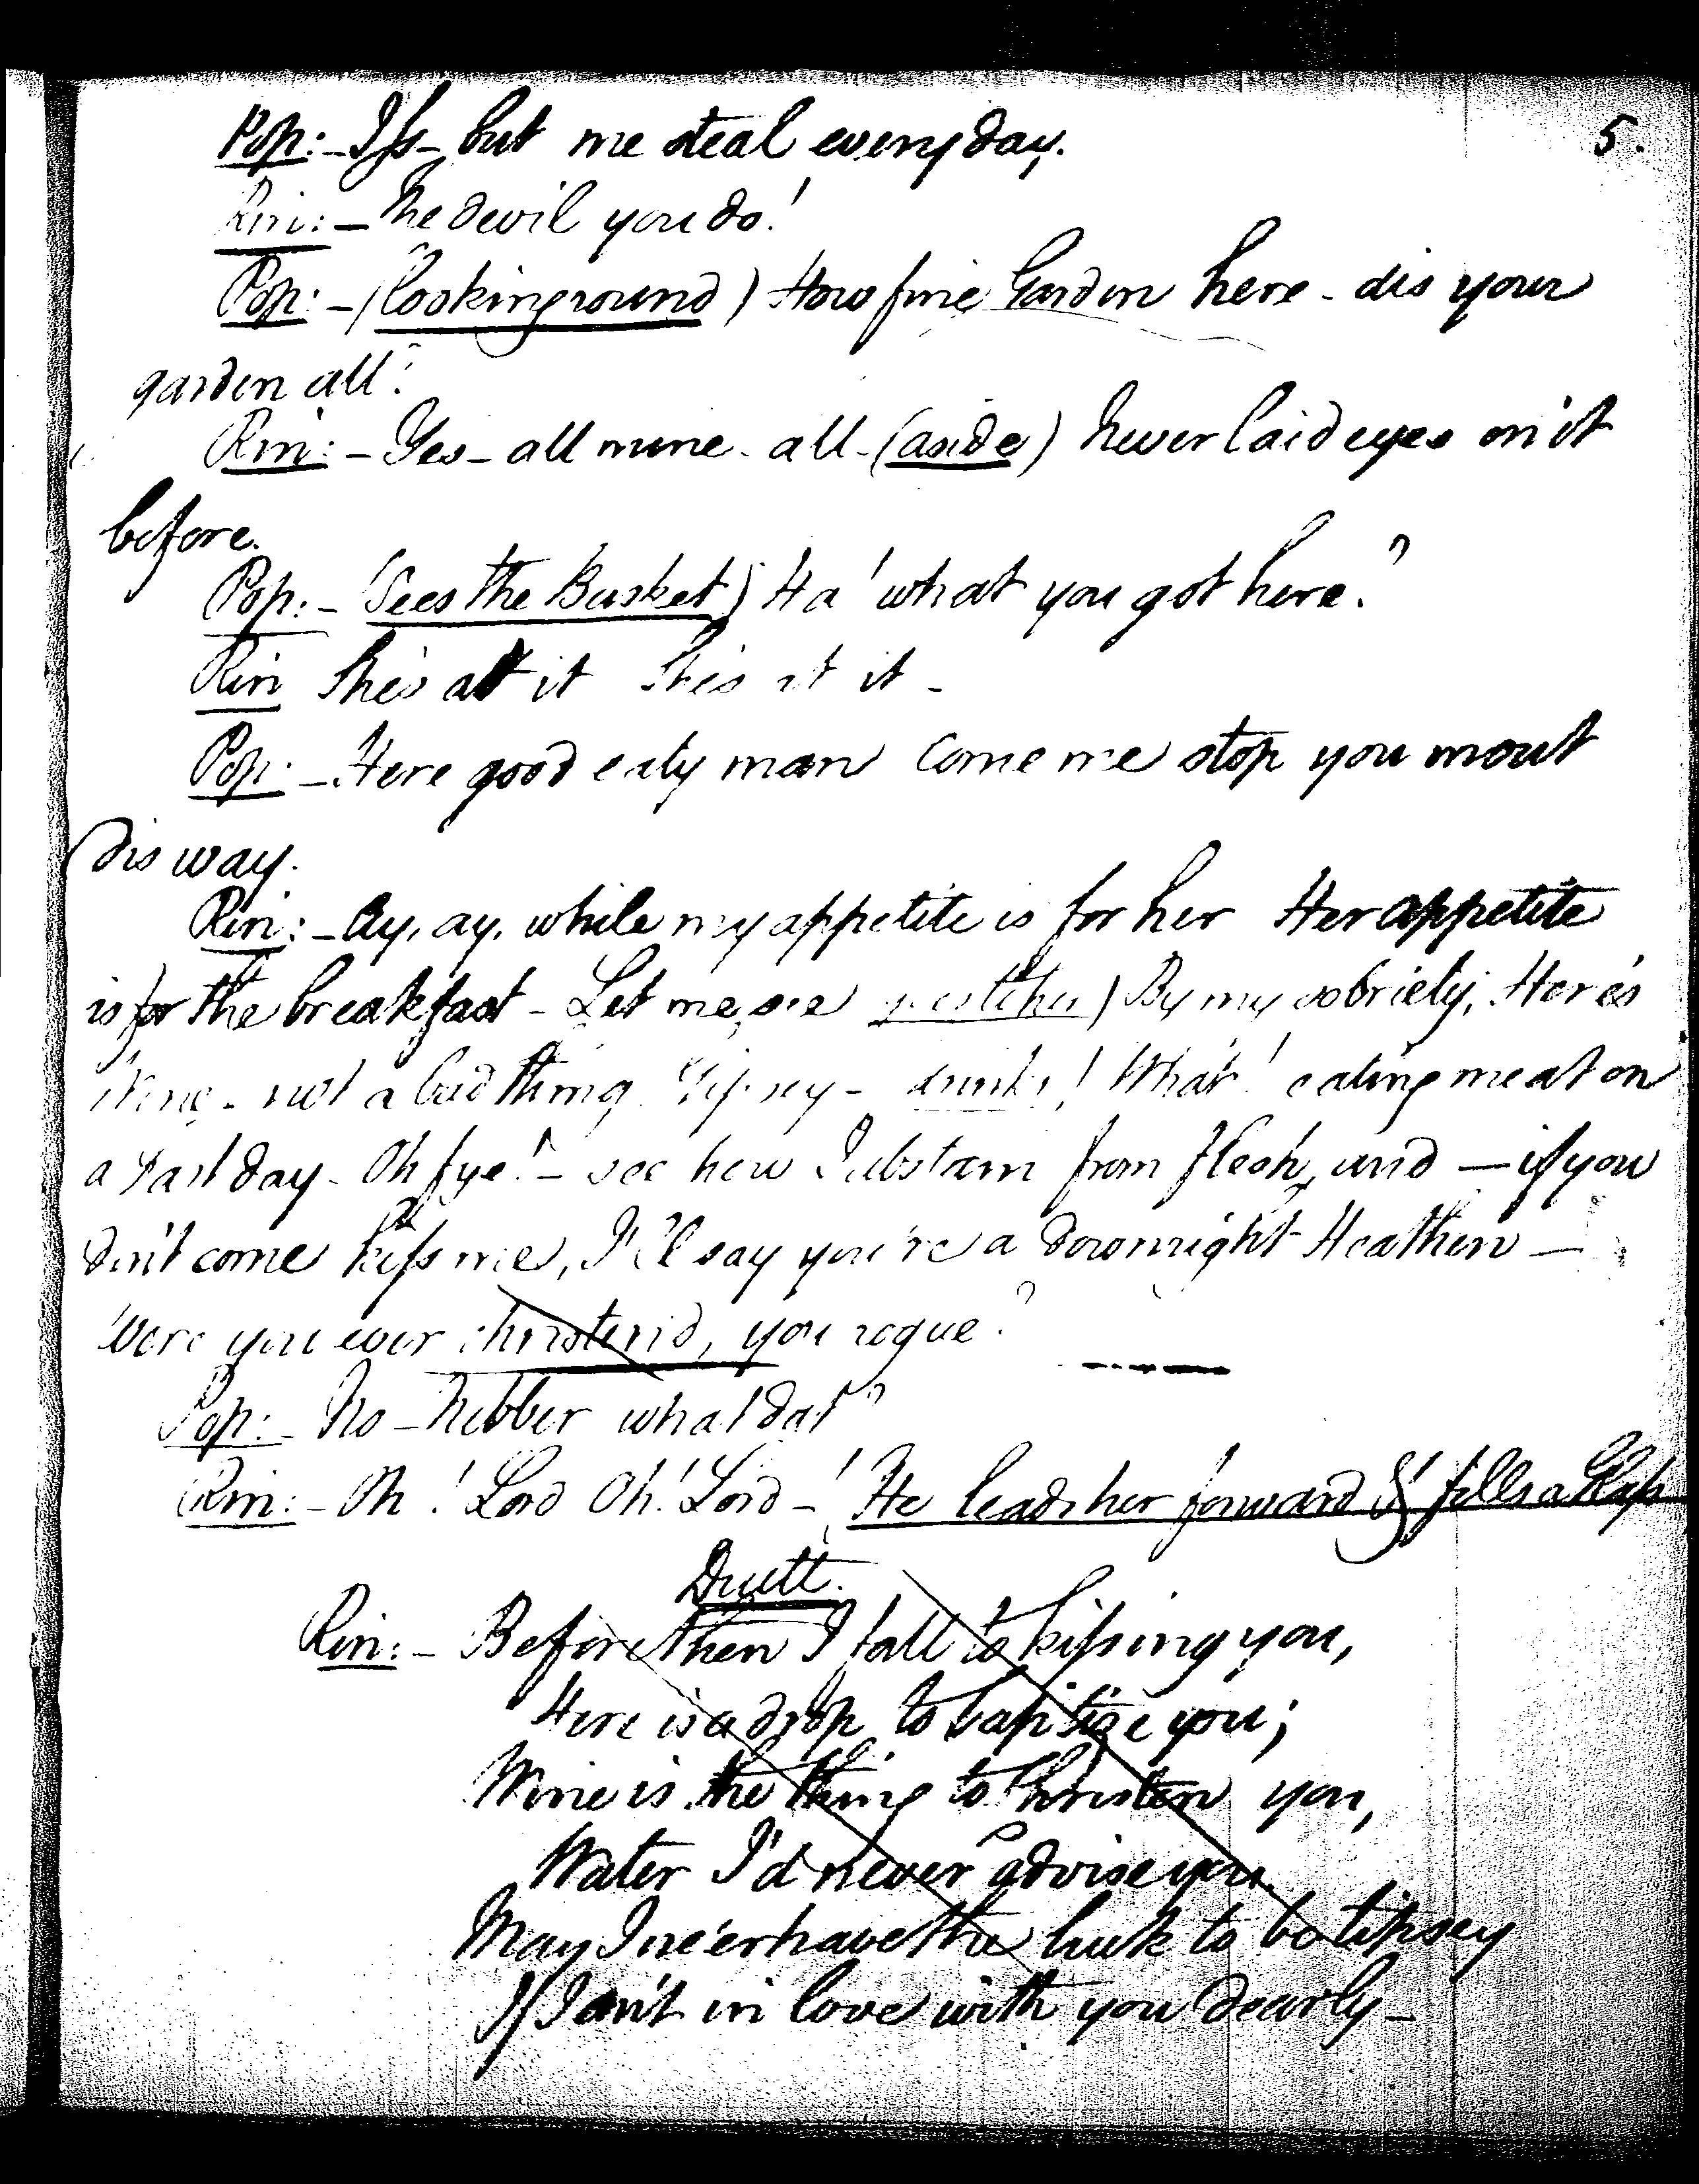 5.
Pop: - Iss - but me steal every day.
Rin: - The devil you do!
Pop: - (looking round) How fine Garden here - dis your
garden all?
Rin: - Yes - all mine - all - (aside) Never laid eyes on it
before.
Pop: - (Sees the Basket) Ha! what you got here?
Rin She's at it She's at it -
Pop: - Here good eaty man Come me stop you mout
dis way.
Rin: - Ay, ay, while my appetite is for her Her appetite
is for the breakfast - Let me see By my sobriety, Here's
Wine - not a bad thing Gipsey - drinks! What! eating meat on
a Fast day - Oh fye! - see how I abstain from flesh, and - if you
don't come kiss me, I'll say you're a downright Heathen -
Were you ever christen'd, you rogue?
Pop: - No - Nebber what dat?
Rin: - Oh! Lord Oh! Lord - ! He leads her forward & fills a Glass
Duett.
Rin: - Before then I fall to kissing you,
Here is a drop to baptize you;
Wine is the thing to Christen you,
Water I'd never advise you
May I ne'er have the luck to be tipsey
If I an't in love with you dearly -